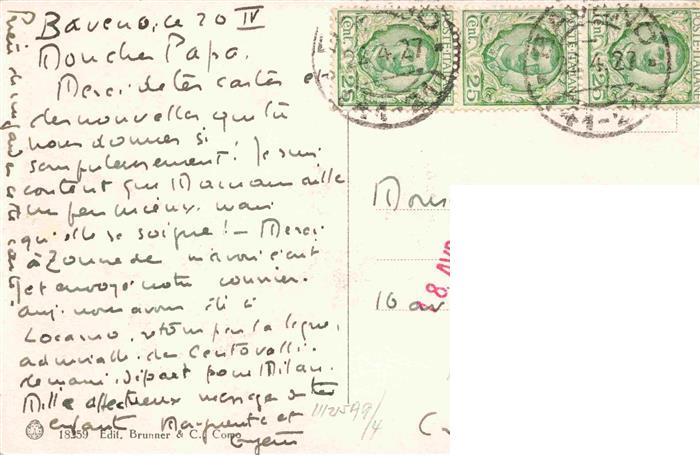 Baveno, ce 20 IV
Mon cher Papa,
Merci de tes cartes et
des nouvelles que tu
nous donnes si
scrupuleusement! Je suis
content que Maman aille
un peu mieux, mais
qu'elle se soigne! - Merci
à de m'avoir écrit
et envoyé notre courrier.
auj. nous avons été à
Locarno, retour par la ligne
admirable du Centovalli.
demain, départ pour Milan.
Mille affectueux messages de tes
enfants Marguerite et
Prière de me garder cette carte.
Mons
16 av
28 AVR
CENT. 25
25
POSTE ITALIANE
4.27
111225A9/4
18259 Edit. Brunner & C., Como